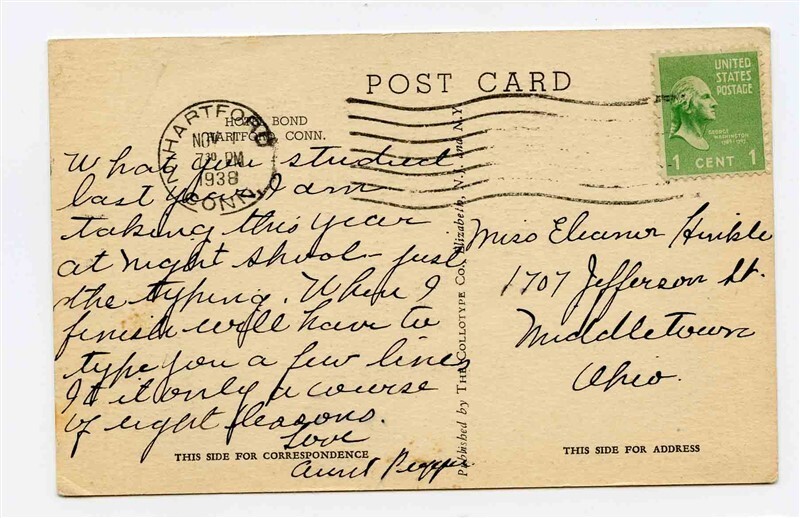 POST CARD
UNITED
STATES
POSTAGE
GEORGE
WASHINGTON
1 CENT 1
HARTFORD
NOV 1
7 30 PM
1938
CONN.
HOTEL BOND
HARTFORD, CONN.
What you studied
last year I am
taking this year
at night shool - just
the typing. When I
finish will have to
type you a few lines
It it only a course
of eight leasons.
Love
Aunt
THIS SIDE FOR CORRESPONDENCE
Published by THE COLLOTYPE CO., Elizabeth, N.J. and N.Y.
Miss Eleanor Hinkle
1707 Jefferson St.
Middletown
Ohio.
THIS SIDE FOR ADDRESS